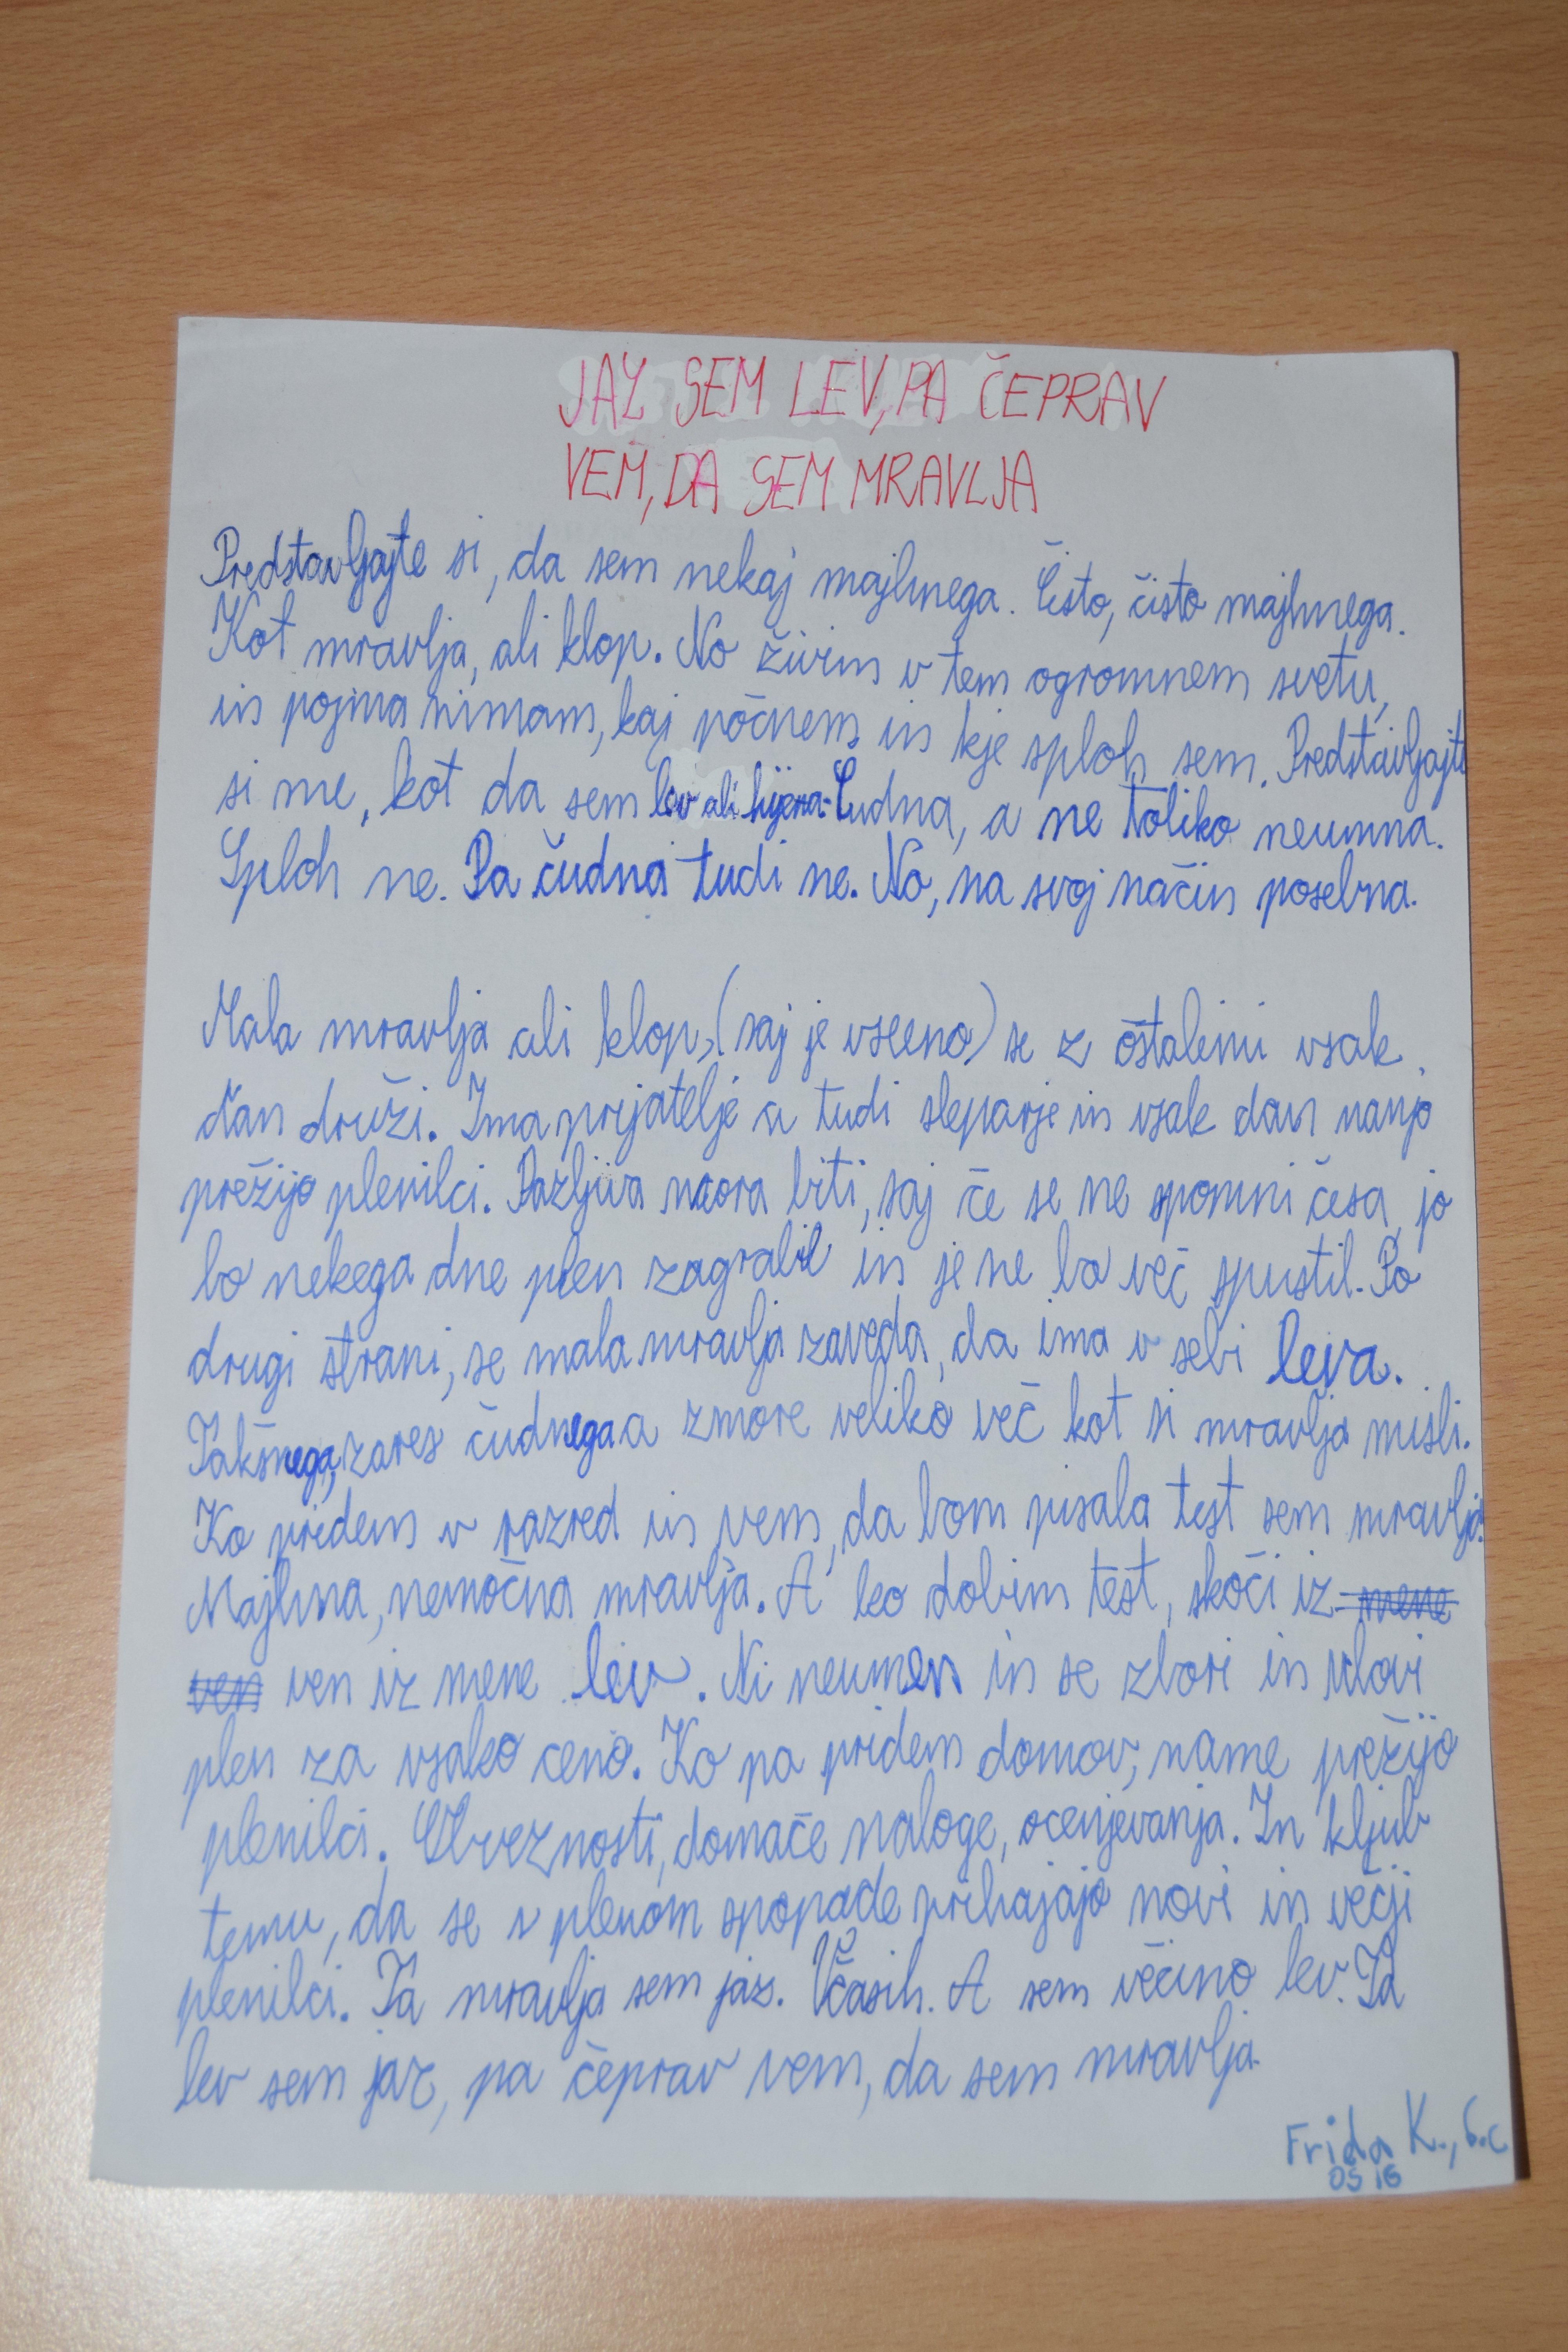 JAZ SEM LEV, PA ČEPRAV
VEM, DA SEM MRAVLJA
Predstavljajte si, da sem nekaj majhnega. Čisto, čisto majhnega.
Kot mravlja, ali klop. No živim v tem ogromnem svetu,
in pojma nimam, kaj počnem in kje sploh sem. Predstavljajte
si me, kot da sem lev ali hijena. Čudna, a ne toliko neumna.
Sploh ne. Pa čudna tudi ne. No, na svoj način posebna.
Mala mravlja ali klop, (saj je vseeno) se z ostalimi vsak
dan druži. Ima prijatelje a tudi sleparje in vsak dan nanjo
prežijo plenilci. Pazljiva mora biti, saj če se ne spomni česa, jo
bo nekega dne plen zagrabil in je ne bo več spustil. Po
drugi strani, se mala mravlja zaveda, da ima v sebi leva.
Takšnega, zares čudnega a zmore veliko več kot si mravlja misli.
Ko pridem v razred in vem, da bom pisala test sem mravlja.
Majhna, nemočna mravlja. A ko dobim test, skoči iz mene
ven ven iz mene lev. Ni neumen in se zbori in ulovi
plen za vsako ceno. Ko pa pridem domov, name prežijo
plenilci. Obveznosti, domače naloge, ocenjevanja. In kljub
temu, da se s plenom spopade prihajajo novi in večji
plenilci. Ta mravlja sem jaz. Včasih. A sem večino lev. Ta
lev sem jaz, pa čeprav vem, da sem mravlja.
Frida K., 6.c
OŠ IG